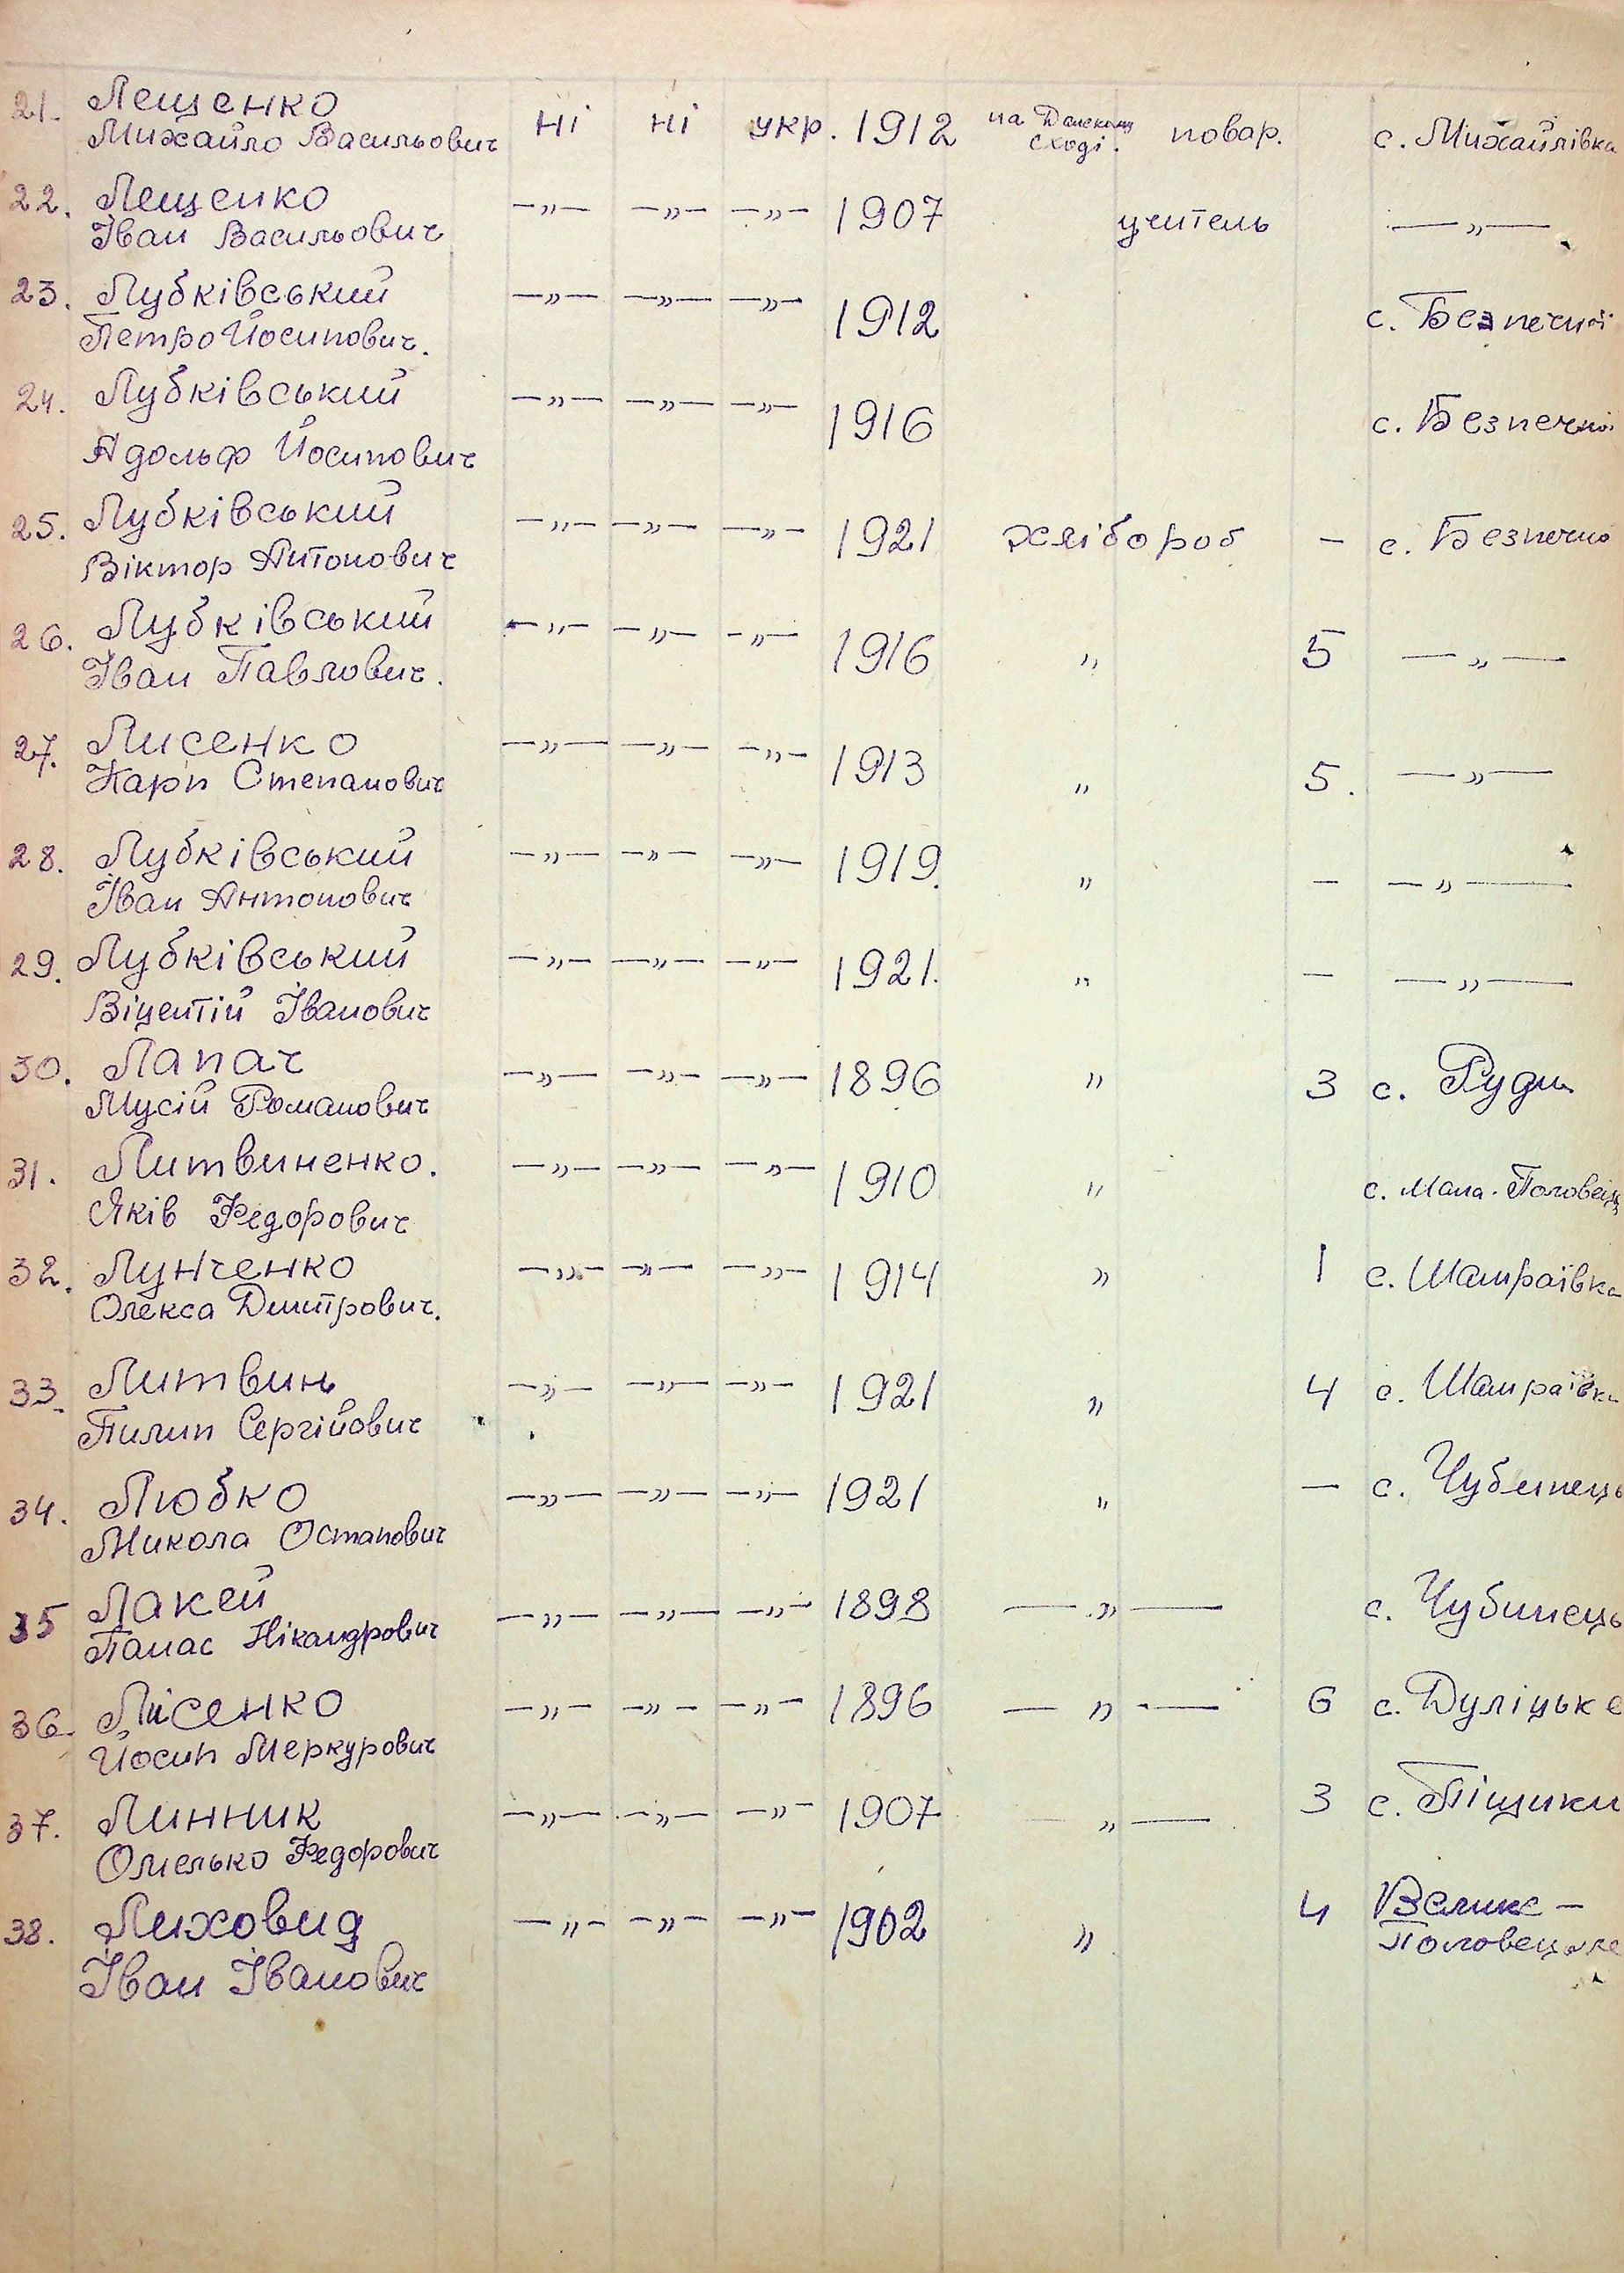 21. Лещенко
Михайло Васильович ні ні укр. 1912 на Далекому Сході. повар. с. Михайлівка
22. Лещенко
Іван Васильович —„— —„— —„— 1907 учитель —„—
23. Лубківський
Петро Йосипович. —„— —„— —„— 1912 с. Безпечної
24. Лубківський
Адольф Йосипович —„— —„— —„— 1916 с. Безпечної
25. Лубківський
Віктор Антонович —„— —„— —„— 1921 хлібороб – с. Безпечно
26. Лубківський
Іван Павлович. —„— —„— —„— 1916 „ 5 —„—
27. Лисенко
Карп Степанович —„— —„— —„— 1913 „ 5. —„—
28. Лубківський
Іван Антонович —„— —„— —„— 1919. „ – —„—
29. Лубківський
Віцентій Іванович —„— —„— —„— 1921. „ – —„—
30. Лапач
Мусій Романович —„— —„— —„— 1896 „ 3 с. Руди
31. Литвиненко.
Яків Федорович —„— —„— —„— 1910 „ с. Мала-Половецьк
32. Лунченко
Олекса Дмитрович. —„— —„— —„— 1914 „ 1 с. Шамраївка
33. Литвинь
Пилип Сергійович —„— —„— —„— 1921 „ 4 с. Шамраївка
34. Любко
Микола Остапович —„— —„— —„— 1921 „ – с. Чубинець
35 Лакей
Панас Нікандрович —„— —„— —„— 1898 —„— с. Чубинець
36. Лісенко
Йосип Меркурович —„— —„— —„— 1896 —„— 6 с. Дуліцьке
37. Линник
Омелько Федорович —„— —„— —„— 1907 —„— 3 с. Піщики
38. Лиховид
Іван Іванович —„— —„— —„— 1902 „ 4 Велике –
Половецьке